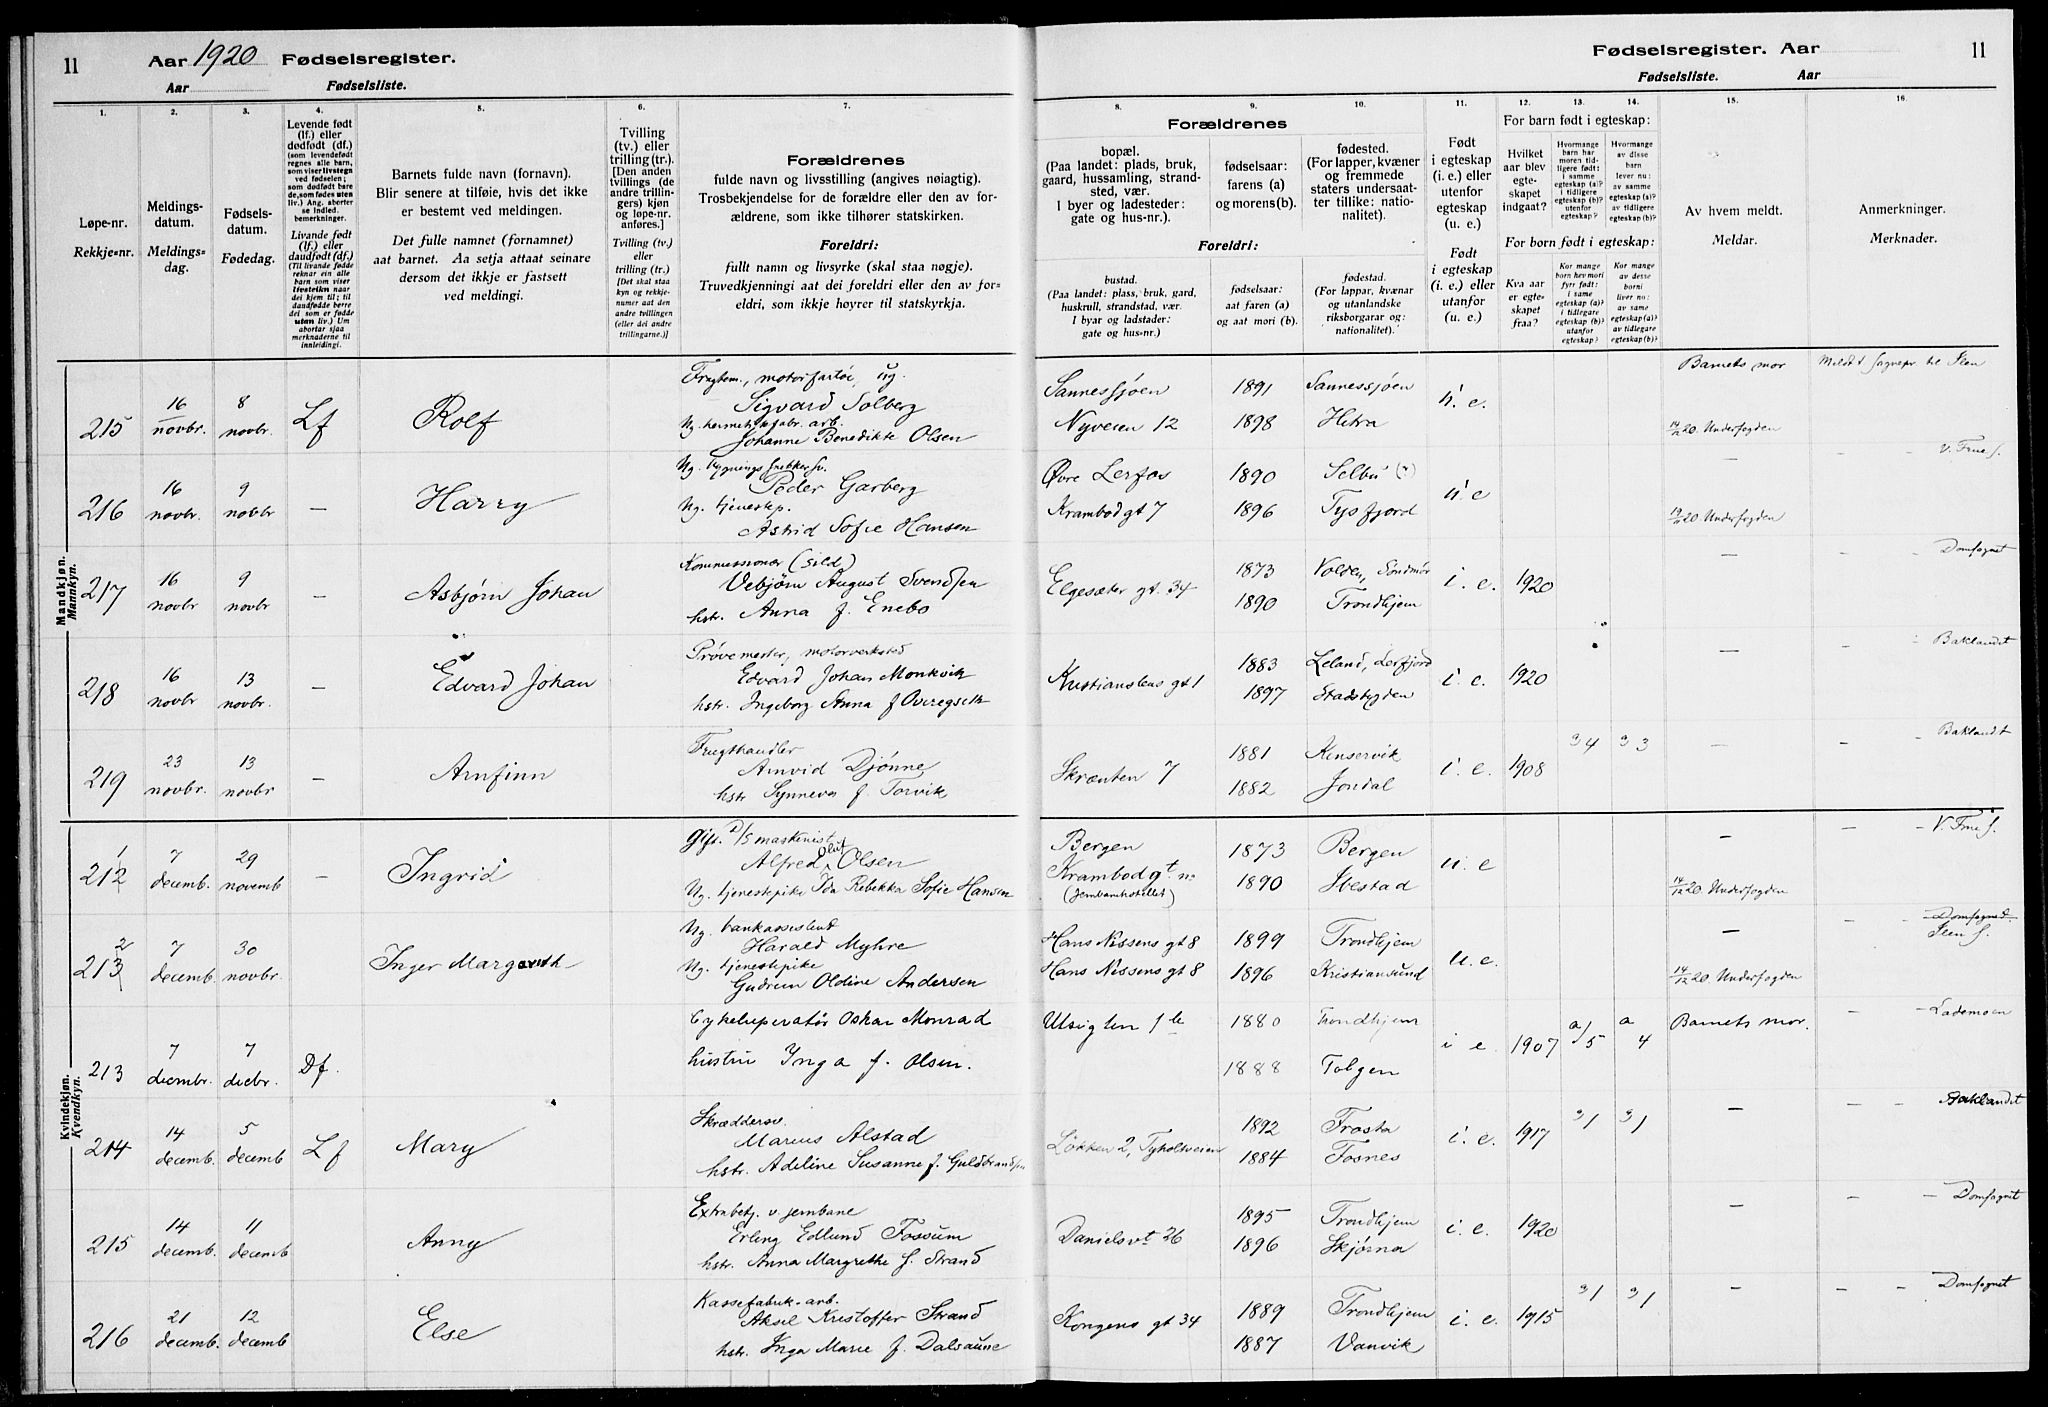 11
Aar 1920 Fødselsregister.
Aar Fødselsliste.
Fødselsregister. Aar
Fødselsliste. Aar
11
1.
Løpe-nr.
Rekkje=nr.
2.
Meldings-
datum.
Meldings=
dag.
3.
Fødsels-
datum.
Fødedag.
4.
Levende født
(lf.) eller
dødfødt (df.)
(som levendefødt
regnes alle barn,
som viser livstegn
ved fødselen;
som dødfødt bare
de, som fødes uten
liv.) Ang. aborter
se indled.
bemerkninger.
Livande født
(lf.) eller
daudfødt (df.)
(Til livande fødde
reknar ein alle
barn som viser
lifsteikn naar
dei kjem til; til
daudfødde berre
dei som er fødde
utan liv.) Um
abortar sjaa
merknaderne til
innleidingi.
5.
Barnets fulde navn (fornavn).
Blir senere at tilføie, hvis det ikke
er bestemt ved meldingen.
Det fulle namnet (fornamnet)
aat barnet. Aa setja attaat seinare
dersom det ikkje er fastsett
ved meldingi.
6.
Tvilling
(tv.) eller
trilling (tr.).
[Den anden
tvillings (de
andre trillin-
gers) kjøn
og løpe-nr.
anføres.]
Tvilling (tv.)
eller
trilling (tr.)
[Det skal staa
kyn og rekkje-
numer aat den
andre tvillingen
(eller dei andre
trillingarne.)]
7.
Forældrenes
fulde navn og livsstilling (angives nøiagtig).
Trosbekjendelse for de forældre eller den av for-
ældrene, som ikke tilhører statskirken.
Foreldri:
fullt namn og livsyrke (skal staa nøgje).
Truvedkjenningi aat dei foreldri eller den av for-
eldri, som ikkje høyrer til statskyrkja.
Forældrenes
8.
bopæl.
(Paa landet: plads, bruk,
gaard, hussamling, strand-
sted, vær.
I byer og ladesteder:
gate og hus-nr.).
9.
fødselsaar:
farens (a)
og morens(b).
10.
fødested.
(For lapper, kvæner
og fremmede
staters undersaat-
ter tillike: natio-
nalitet).
Foreldri:
bustad.
(Paa landet: plass, bruk, gard,
huskrull, strandstad, vær.
I byar og ladstader:
gate og hus-nr.)
fødselsaar:
aat faren (a)
og aat mori (b).
fødestad.
(For lappar, kvænar
og utanlandske
riksborgarar og:
nationalitet).
11.
Født
i egteskap
(i. e.) eller
utenfor
egteskap
(u. e.)
Født
i egteskap
(i. e.) eller
utanfor
(u. e.)
For barn født i egteskap:
12.
Hvilket
aar blev
egte-
skapet
indgaat?
13.
Hvormange
barn har
moren tid-
ligere født:
i samme
egteskap (a)?
i tidligere
egteskap (b)?
utenfor
egteskap?
14.
Hvormange
av disse
barn
lever nu:
av samme
egteskap (a)?
av tidligere
egteskap(b)?
For born født i egteskap:
Kva aar
er egte-
skapet
fraa?
Kor mange
born hev mori
fyrr født:
i same
egteskap (a)?
i tidlegare
egteskap (b)?
utanfor
egteskap?
Kor mange
av desse
borni
liver no:
av same
egteskap(a)?
av tidlegare
egteskap(b)?
15.
Av hvem meldt.
Meldar.
16.
Anmerkninger.
Merknader.
Mandkjøn.
Mannkyn.
215 16 novbr. 8 novbr. Lf Rolf
Sigvard Solberg
Johanne Benedikte Olsen
Sannessjøen 1891 Sannessjøen u. e. Barnets mor
Nyveien 12 1898 Hitra 14/12 20. Underfogden
216 16 novbr. 9 novbr — Harry
Peder Garberg
Ug. tjenestep.
Astrid Sofie Hansen
Øvre Lerfos 1890 Selbu u. e — — — V. Frue s.
Krambodgt 7 1896 Tysfjord Underfogden
217 16 novbr 9 novbr. — Asbjørn Johan
Kommissionær (sild)
Vebjørn August Svendsen
hstr. Anna f. Enebo
Elgesæter gt. 34 1873 Volden, Söndmör i. e. 1920 — — — Domsognet
1890 Trondhjem
218 16 novbr 13 novbr. — Edvard Johan
Prøvemester, motorverksted
Edvard Johan Monkvik
hstr. Ingeborg Anna f Overegseth
Kristianstens gt 1 1883 Leland, Lerfjord i. e. 1920 — — Baklandet
1897 Stadsbygden
219 23 novbr. 13 novbr — Arnfinn
Frugthandler
Arnvid Djønne
hstr Synneva f. Torvik
Skrænten 7 1881 Kinservik i. e. 1908 a 4 a 3 — — — Baklandet
1882 Jondal
Kvindekjøn.
Kvendkyn.
212 1 7 decemb. 29 novemb — Ingrid
Gift D/S maskinist
Alfred Oluf Olsen
Ug. tjenestepike Ida Rebekka Sofie Hansen
Bergen 1873 Bergen u. e — — — V. Frue s.
Krambodgt. 1890 Ibestad 14/12 20. Underfogden
(Jernbanehotellet)
213 2 7 decemb. 30 novbr. Inger Margareth
Ug. bankassistent
Harald Myhre
Ug. tjenestepike
Gudrun Oldine Andersen
Hans Nissens gt 8 1899 Trondhjem u. e. — — — Domsognet
Ilen s.
Hans Nissens gt 8 1896 Kristiansund 14/12 20. Underfogden
213 7 decembr. 7 decbr. Df.
Oskar Monrad
hustru Inga f. Olsen.
Utsigten 1880 Trondhjem i e. 1907 a/5 a 4 Barnets mor. — — Lademoen
1888 Tolgen
214 14 decemb. 5 decemb Lf Mary
Skræddersv.
Marius Alstad
hstr. Adeline Susanne f. Guldbrandsen
Løkken 2, Tyholtveien 1892 Frosta i. e. 1917 a 1 a 1 — — — Baklandet
1884 Fosnes
215 14 decemb. 11 decemb Anny
Extrabetj. v. jernbane
Erling Edlund Fossum
hstr. Anna Margrethe f. Strand
Danielsvt 26 1895 Trondhjem i. e. 1920 — — — Domsognet
1896 Skjørna
216 21 decemb. 12 decemb Else
Kassefabrik-arb.
Aksel Kristoffer Strand
hstr. Inga Marie f. Dalsaune
Kongens gt 34 1889 Trondhjem i. e. 1915 a 1 a 1 — — — Domsognet
1887 Vanvik